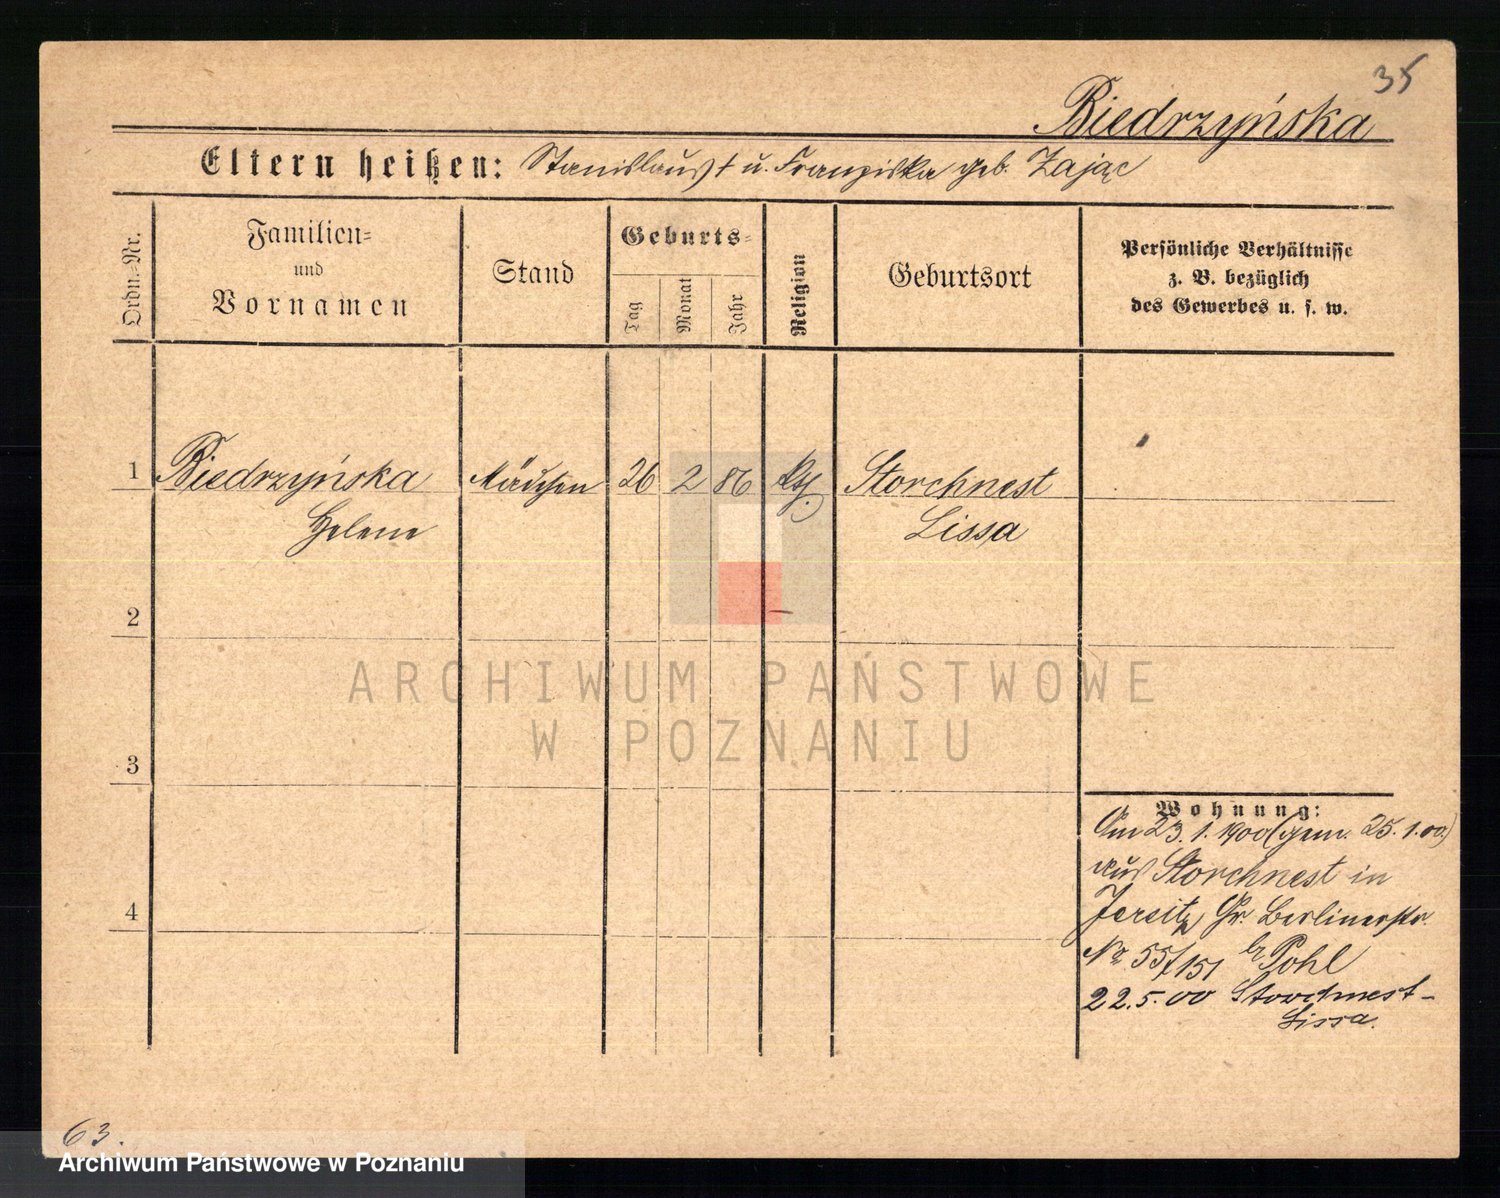 35
Biedrzyńska
Eltern heißen: Stanislaus † u. Franziska geb. Zając
Ordn.=Nr.
Familien=
und
Vornamen
Stand
Geburts=
Tag
Monat
Jahr
Religion
Geburtsort
Persönliche Verhältnisse
z. B. bezüglich
des Gewerbes u. s. w.
1 Biedrzyńska Mädchen 26 2 86 kth. Storchnest
Helene Lissa
2
3
4
Wohnung:
Am 23.1.1900 (gem. 25.1.00)
aus Storchnest in
Jersitz Gr. Berlinerstr.
No 55/151 br Pohl
22.5.00 Storchnest-
Lissa.
63.
ARCHIWUM PAŃSTWOWE
W POZNANIU
Archiwum Państwowe w Poznaniu